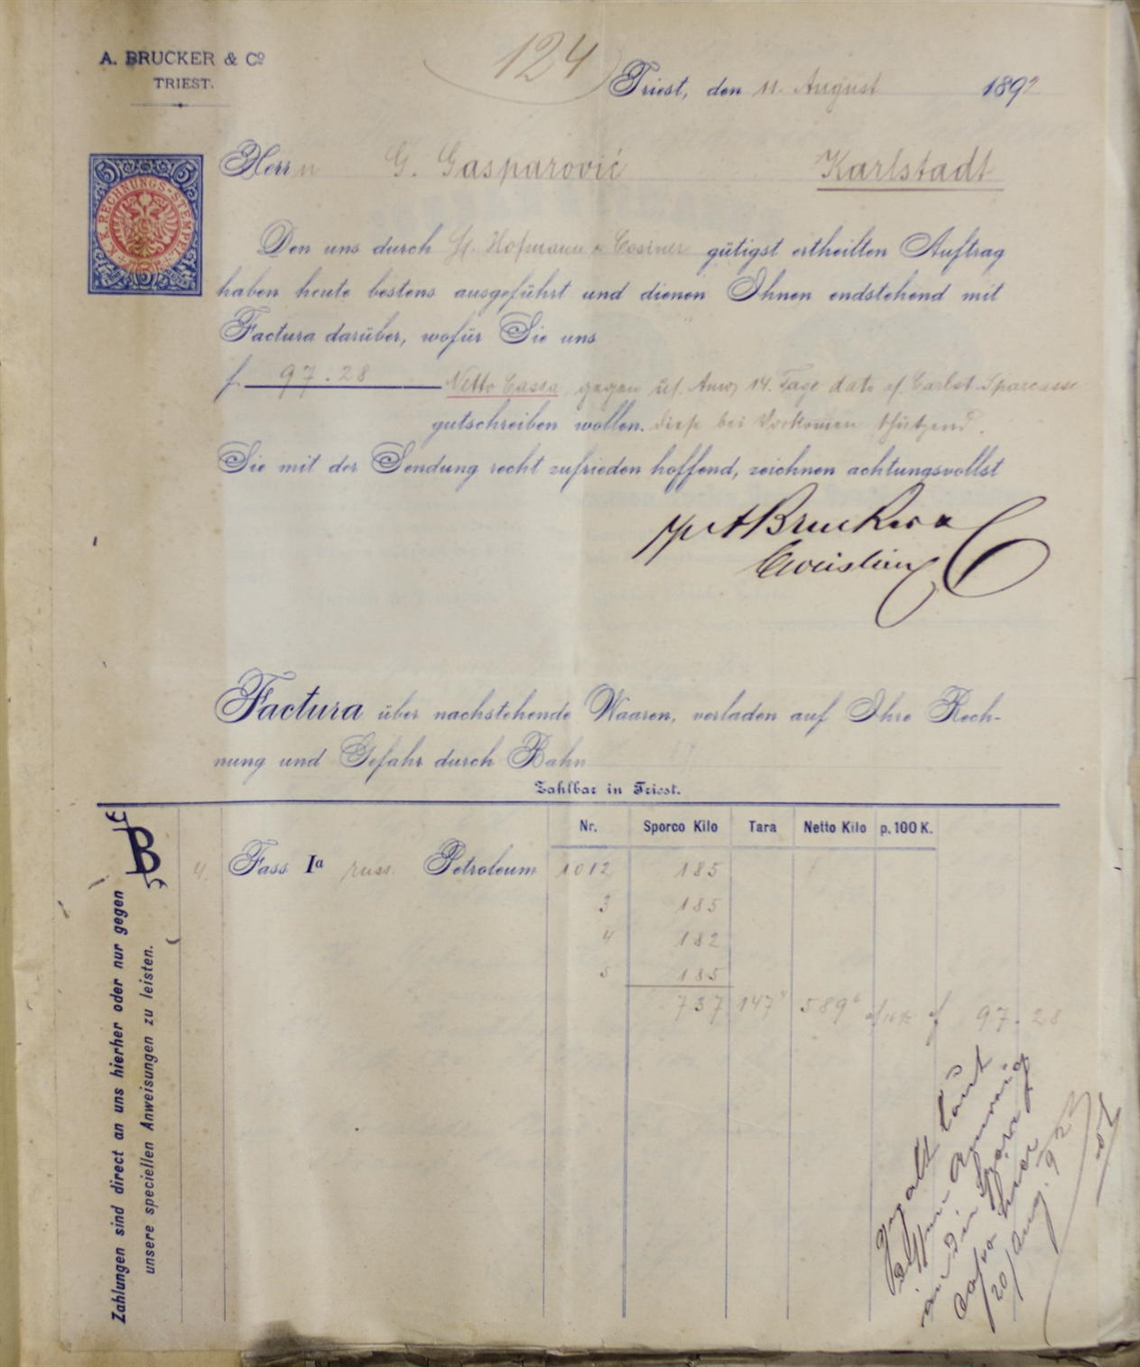 A. BRUCKER & Cº
TRIEST.
124
Triest, den 11. August 189
5 5
K. K. RECHNUNGS-STEMPEL
5 5
Herrn G. Gasparović Karlstadt
Den uns durch Hofmann & gütigst ertheilten Auftrag
haben heute bestens ausgeführt und dienen Ihnen endstehend mit
Factura darüber, wofür Sie uns
f. 97.28 Netto Cassa, gegen 14. Tage dato Carlst. Sparcasse
gutschreiben wollen.
Sie mit der Sendung recht zufrieden hoffend, zeichnen achtungsvollst
A Brucker & C
Factura über nachstehende Waaren, verladen auf Ihre Rech-
nung und Gefahr durch Bahn
Zahlbar in Triest.
Nr. Sporco Kilo Tara Netto Kilo p. 100 K.
4 Fass Iª russ. Petroleum 1012 185
3 185
4 182
5 185
737 147 589 f 97.28
B
Zahlungen sind direct an uns hierher oder nur gegen
unsere speciellen Anweisungen zu leisten.
laut
in die
20/Aug. 92